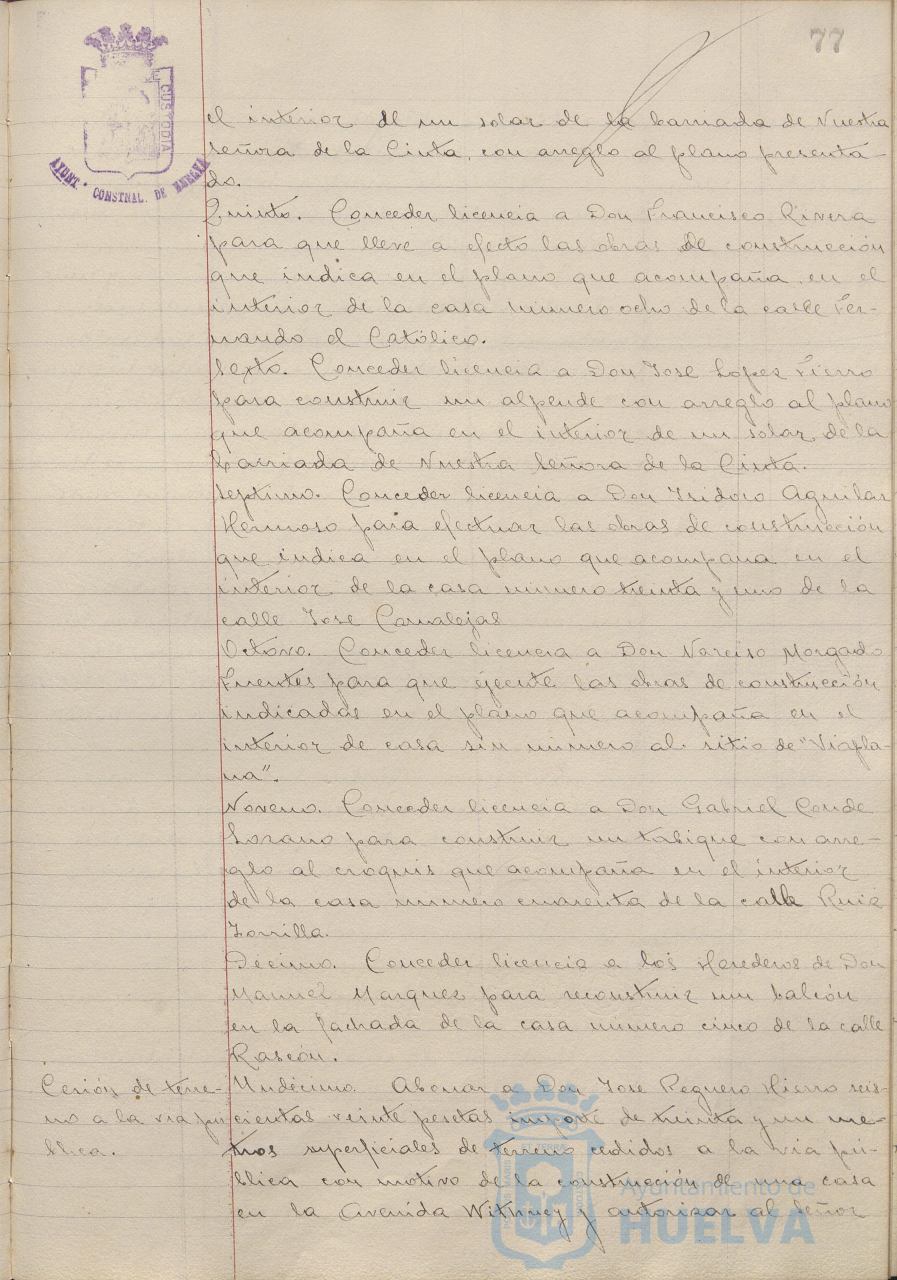 77
CUSTODIA
AYUNT. CONSTNAL. DE HUELVA
el interior de un solar de la barriada de Nuestra
Señora de la Cinta, con arreglo al plano presenta-
do.
Quinto. Conceder licencia a Don Francisco Rivera
para que lleve a efecto las obras de construcción
que indica en el plano que acompaña en el
interior de la casa número ocho de la calle Fer-
nando el Católico.
Sexto. Conceder licencia a Don Jose Lopez Fierro
para construir un alpende con arreglo al plano
que acompaña en el interior de un solar de la
barriada de Nuestra Señora de la Cinta.
Septimo. Conceder licencia a Don Isidoro Aguilar
Hermoso para efectuar las obras de construcción
que indica en el plano que acompana en el
interior de la casa número treinta y uno de la
calle Jose Canalejas
Octavo. Conceder licencia a Don Narciso Morgado
Fuentes para que ejecute las obras de construcción
indicadas en el plano que acompaña en el
interior de casa sin número al sitio de "Viapla-
na".
Noveno. Conceder licencia a Don Gabriel Conde
Lozano para construir un tabique con arre-
glo al croquis que acompaña en el interior
de la casa numero cuarenta de la calle Ruiz
Zorrilla.
Décimo. Conceder licencia a los Herederos de Don
Manuel Marquez para reconstruir un balcón
en la fachada de la casa número cinco de la calle
Rascón.
Cesión de terre-
no a la via pú-
blica.
Undécimo. Abonar a Don Jose Reguero Hierro seis-
cientas veinte pesetas importe de treinta y un me-
tros superficiales de terreno cedidos a la via pú-
blica con motivo de la construcción de una casa
en la Avenida Withney y autorizar al Señor
Ayuntamiento de
HUELVA